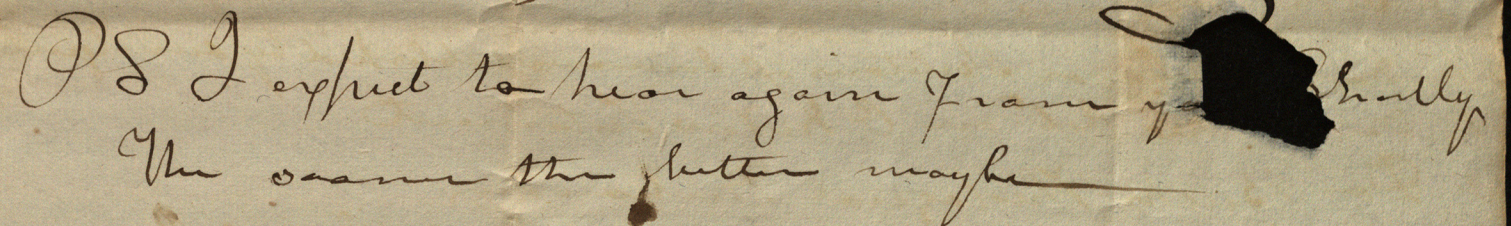 PS I expect to hear again From y Shortly
The sooner the better maybe